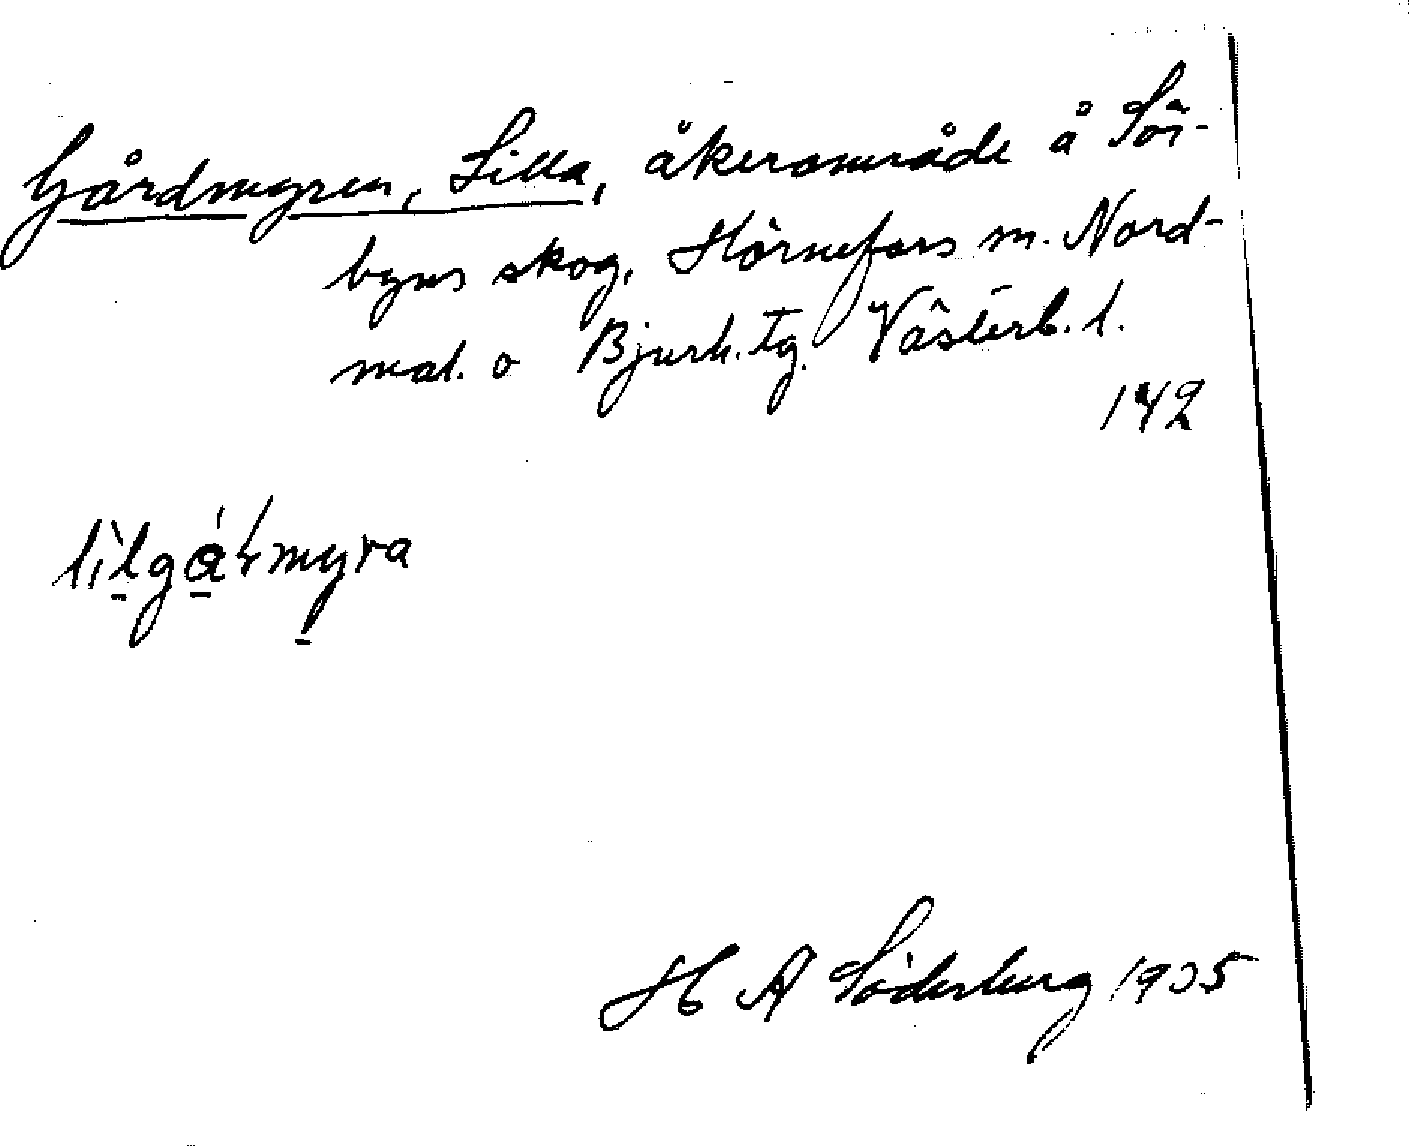 Gårdmyren, Lilla, åkerområde å Sör-
byns skog, Hörnefors sn. Nord-
mal. o Bjurh. tg. Västerb. l.
142
H A Söderberg 1935